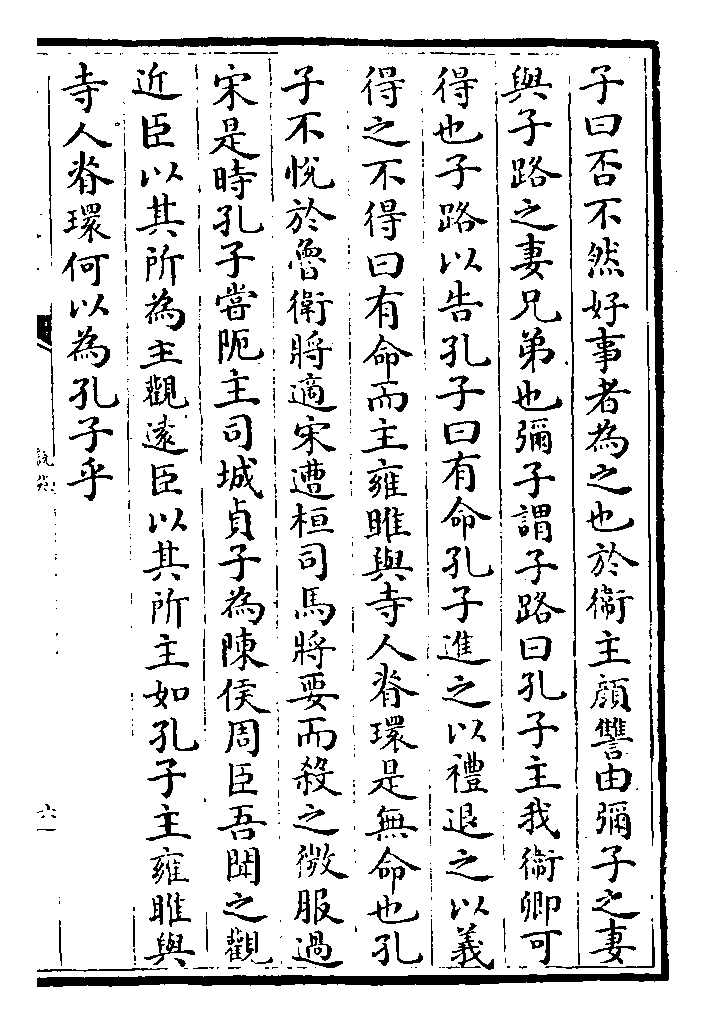 子曰否不然好事者為之也於衞主顔讐由彌子之妻
與子路之妻兄弟也彌子謂子路曰孔子主我衞卿可
得也子路以告孔子曰有命孔子進之以禮退之以義
得之不得曰有命而主雍雎與寺人脊環是無命也孔
子不悅於魯衛將適宋遭桓司馬將要而殺之微服過
宋是時孔子嘗阨主司城貞子為陳侯周臣吾聞之觀
近臣以其所為主觀遠臣以其所主如孔子主雍雎與
寺人脊環何以為孔子乎
六一